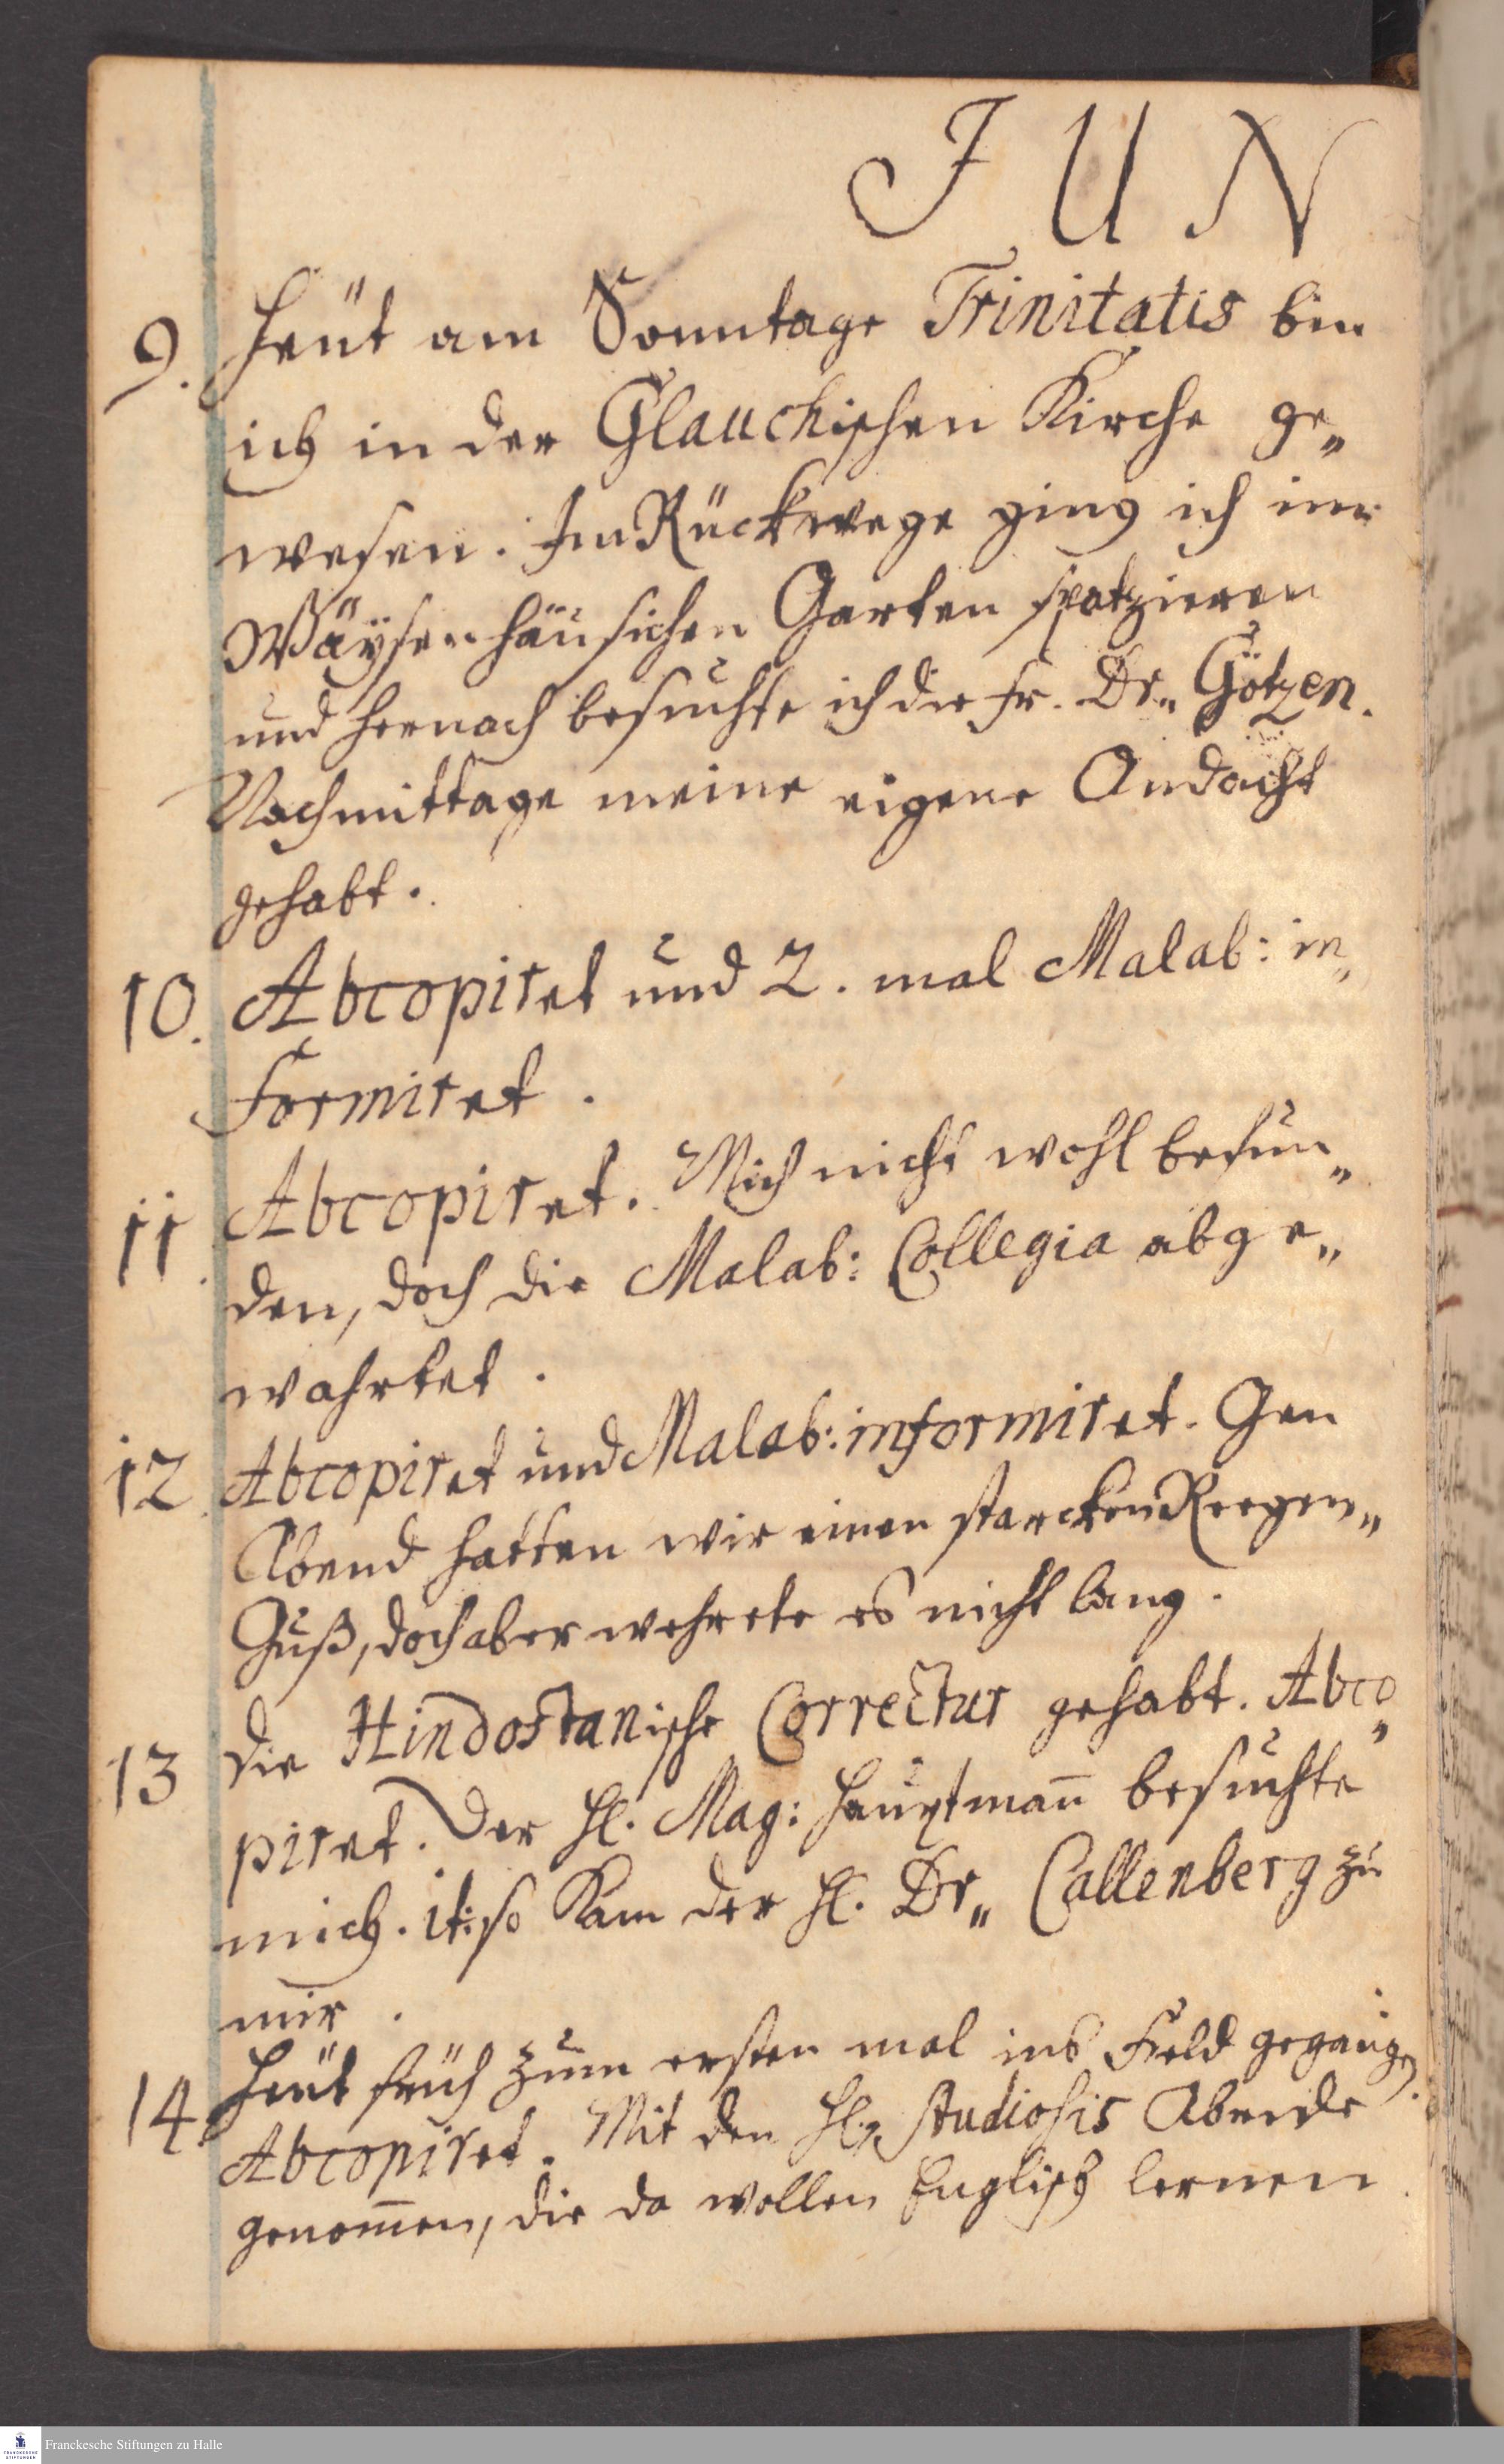 J U N
9. Heüt am Sonntage Trinitatis bin
ich in der Glauchischen Kirche ge„
wesen. Im Rückwege ging ich im
Wäysenhäusichen Garten spatzieren
und hernach besuchte ich die Fr. Dr„ Götzen.
Nachmittage meine eigene Andacht
gehabt.
10. Abcopiret und 2. mal Malab: in„
formiret.
11. Abcopiret. Mich nicht wohl befun„
den, doch die Malab: Collegia abge„
wahrtet.
12. Abcopiret und Malab: informiret. Gen
Abend hatten wir einen starcken Reegen„
Guß, doch aber wehrete es nicht lang.
13 die Hindostanische Correctur gehabt. Abco„
piret. Der Hl. Mag: Hauptmañ besuchte
mich. it: so Kam der Hl. Dr„ Callenberg zu
mir.
14. Heüt früh zum ersten mal ins Feld gegangen.
Abcopiret. Mit den Hln Studiosis Abrede
genom̄en, die da wollen Englisch lernen.
FRANCKESCHE STIFTUNGEN
Franckesche Stiftungen zu Halle